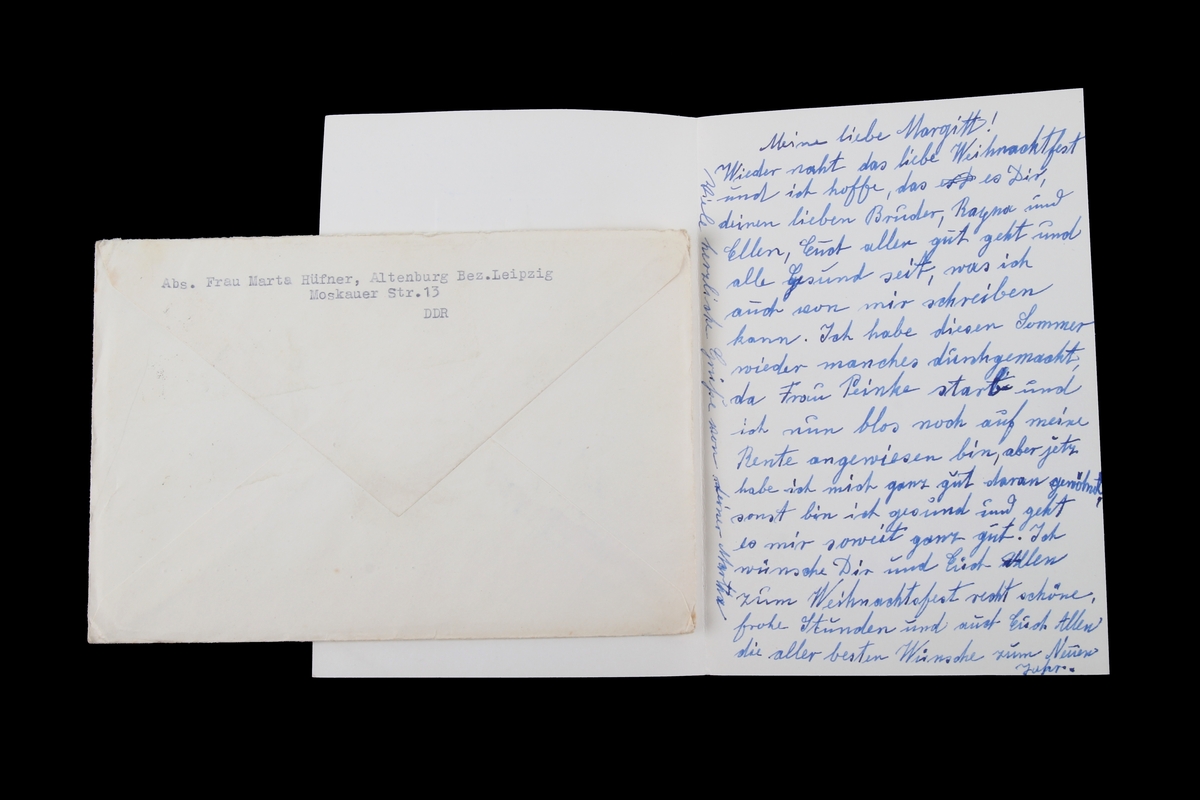 Abs. Frau Marta Hüfner, Altenburg Bez.Leipzig
Moskauer Str.13
DDR
Meine liebe Margitt!
Wieder naht das liebe Weihnachtfest
und ich hoffe, das es Dir,
deinen lieben Bruder, Rayna und
Ellen, Euch allen gut geht und
alle gesund seit, was ich
auch von mir schreiben
kann. Ich habe diesen Sommer
wieder manches durchgemacht,
da Frau Peinke starb und
ich nun blos noch auf meine
Rente angewiesen bin, aber jetz
habe ich mich ganz gut daran gewöhnt,
sonst bin ich gesund und geht
es mir soweit ganz gut. Ich
wünsche Dir und Euch Allen
zum Weihnachtsfest recht schöne,
frohe Stunden und auch Euch Allen
die aller besten Wünsche zum Neuen
Jahr.
Viele herzliche Grüße von deiner Martha